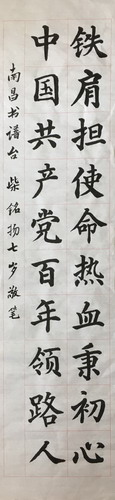 铁肩担使命热血秉初心
中国共产党百年领路人
南昌书谱台 柴铭扬七岁敬笔